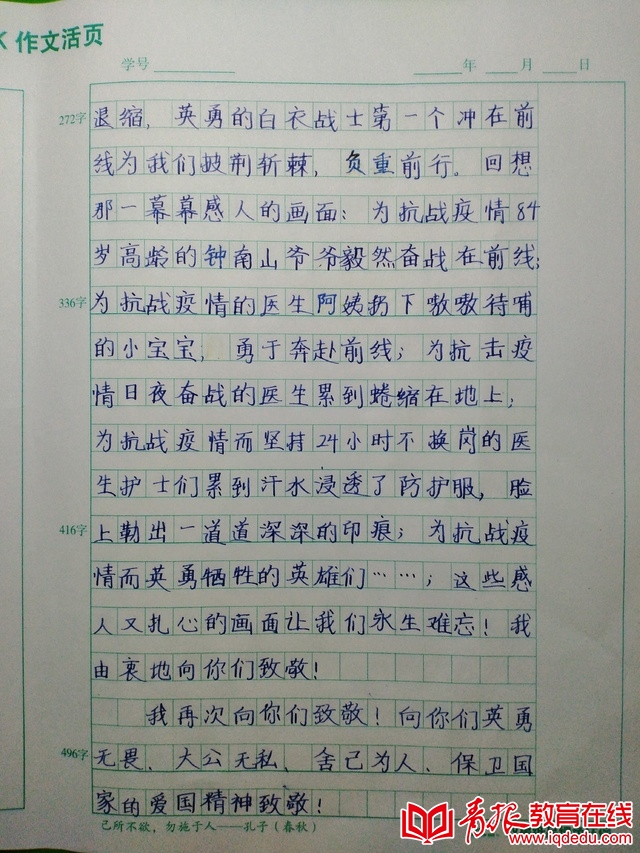 作文活页
学号 年 月 日
272字
退缩，英勇的白衣战士第一个冲在前
线为我们披荆斩棘，负重前行。回想
那一幕幕感人的画面：为抗战疫情84
岁高龄的钟南山爷爷毅然奋战在前线；
336字
为抗战疫情的医生阿姨拐下嗷嗷待哺
的小宝宝，勇于奔赴前线；为抗击疫
情日夜奋战的医生累到蜷缩在地上；
为抗战疫情而坚持24小时不换岗的医
生护士们累到汗水浸透了防护服，脸
416字
上勒出一道道深深的印痕；为抗战疫
情而英勇牺牲的英雄们……；这些感
人又扎心的画面让我们永生难忘！我
由衷地向你们致敬！
我再次向你们致敬！向你们英勇
496字
无畏、大公无私、舍己为人、保卫国
家的爱国精神致敬！
己所不欲，勿施于人——孔子（春秋）
青报教育在线
www.iqdedu.com